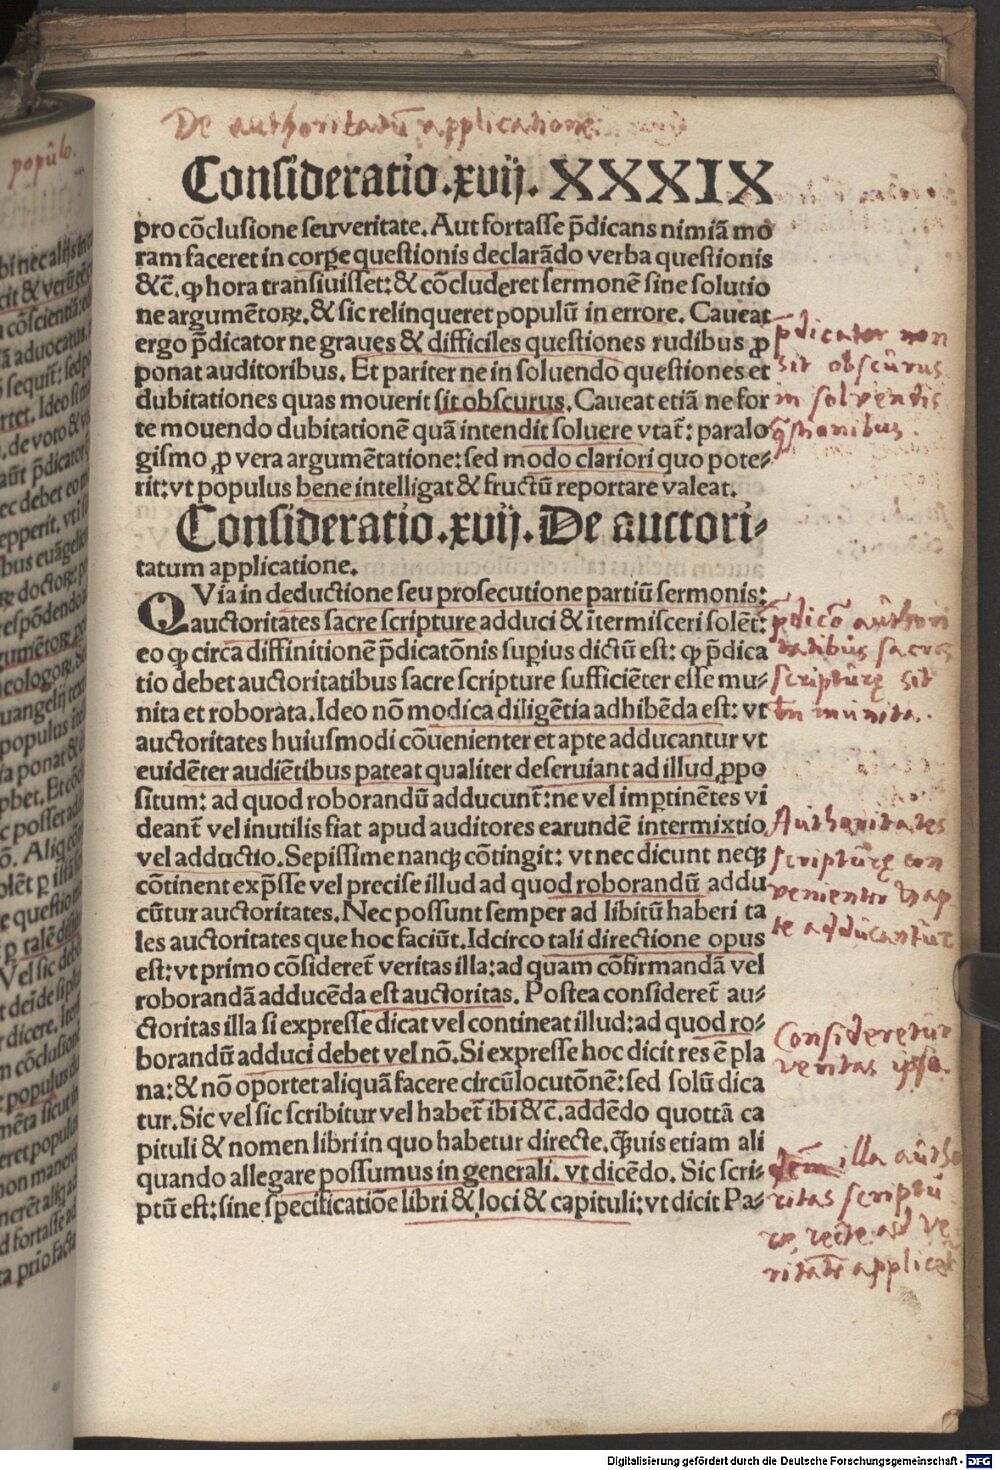 De authoritatū applicatione
Consideratio.xvij. XXXIX
pro cōclusione seu veritate. Aut fortasse p̄dicans nimiā mo
ram faceret in corpe questionis declarādo verba questionis
&c̄. ꝙ hora transiuisset: & cōcluderet sermonē sine solutio
ne argumētoꝝ. & sic relinqueret populū in errore. Caueat
ergo p̄dicator ne graues & difficiles questiones rudibus ꝓ
ponat auditoribus. Et pariter ne in soluendo questiones et
dubitationes quas mouerit sit obscurus. Caueat etiā ne for
te mouendo dubitationē quā intendit soluere vtat̄: paralo
gismo ꝓ vera argumētatione: sed modo clariori quo pote⸗
rit: vt populus bene intelligat & fructū reportare valeat.
Consideratio.xvij. De auctori⸗
tatum applicatione.
QVia in deductione seu prosecutione partiū sermonis:
auctoritates sacre scripture adduci & ītermisceri solēt:
eo ꝙ circa diffinitionē p̄dicatōnis supius dictū est: ꝙ p̄dica
tio debet auctoritatibus sacre scripture sufficiēter esse mu⸗
nita et roborata. Ideo nō modica diligētia adhibēda est: vt
auctoritates huiusmodi cōuenienter et apte adducantur vt
euidēter audiētibus pateat qualiter deseruiant ad illud ꝓpo
situm: ad quod roborandū adducunt̄: ne vel imptinētes vi
deant̄ vel inutilis fiat apud auditores earundē intermixtio
vel adductio. Sepissime nanqꝫ cōtingit: vt nec dicunt neqꝫ
cōtinent exp̄sse vel precise illud ad quod roborandū addu
cūtur auctoritates. Nec possunt semper ad libitū haberi ta
les auctoritates que hoc faciūt. Idcirco tali directione opus
est: vt primo cōsideret̄ veritas illa: ad quam cōfirmandā vel
roborandā adducēda est auctoritas. Postea consideret̄ au⸗
ctoritas illa si expresse dicat vel contineat illud: ad quod ro⸗
borandū adduci debet vel nō. Si expresse hoc dicit res ē pla
na: & nō oportet aliquā facere circūlocutōnē: sed solū dica
tur. Sic vel sic scribitur vel habet̄ ibi &c̄. addēdo quottā ca
pituli & nomen libri in quo habetur directe. q̄uis etiam ali
quando allegare possumus in generali. vt dicēdo. Sic scri⸗
ptū est: sine specificatiōe libri & loci & capituli: vt dicit Pa⸗
p̄dicator non
sit obscūrus
in solvendis
q̄stionibus.
p̄dicō aūthori
tatibus sacre
scriptūrę sit
tn̄ munita.
Authoritates
scriptūrę con
venienter
te addūcantūr
Considerētūr
veritas ipsa.
illa aūtho
ritas scriptū
rę, recte ad ve
ritatē applicat
popūlo.
Digitalisierung gefördert durch die Deutsche Forschungsgemeinschaft - DFG